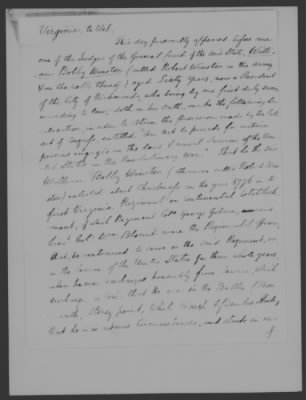 Virginia, to Wit.
This day personally appeared before me
one of the Judges of the General Court of the said State, Willi-
am Bobby Winston (called Robert Winston in the Army
& on the rolls thereof) aged Sixty years, now a Resident
of the City of Richmond, who being by me first duly sworn
according to law, doth on his oath, make the following de-
claration, in order to obtain the provision made by the late
act of Congress entitled, "An Act to provide for certain
persons engaged in the Land & naval Service of the Uni-
ted States in the Revolutionary War." That he the said
William Bobby Winston (otherwise called Robert Wins-
ton) enlisted about Christmas in the year 1776 in the
first Virginia Regiment on Continental Establish-
ment, of which Regiment Colo. George Gibson, and
Colo. Wm. were the Regimental officers,
that he continued to serve in the said Regiment, or
in the Service of the United States, for three whole years
when he was discharged honorably from Service, which
discharge is lost, that he was in the Battles of Mon-
mouth, Stoney point,
that he is in reduced Circumstances, and stands in need
of